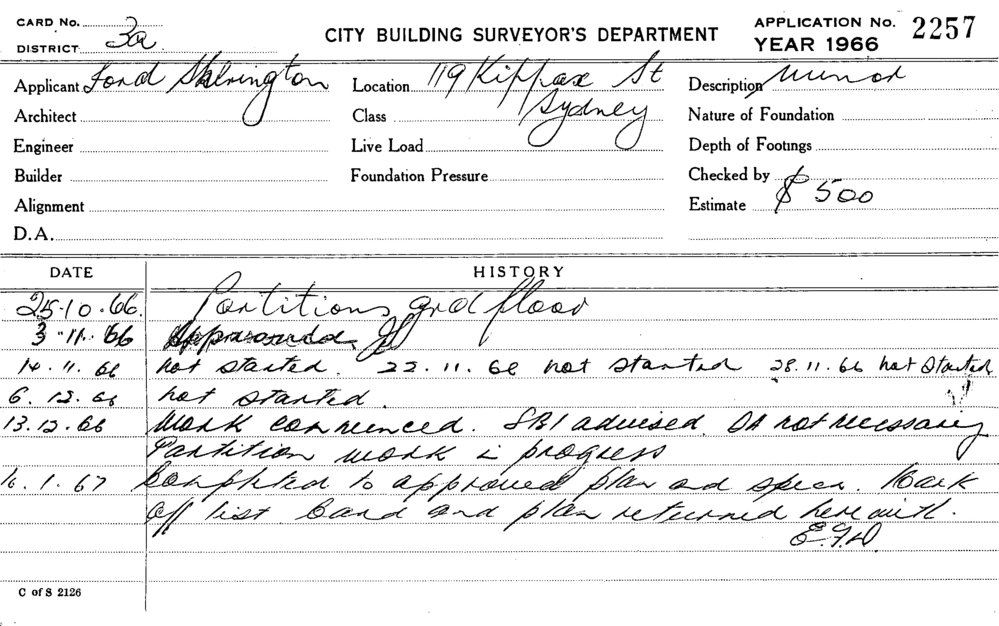 CARD No.
DISTRICT 3a
CITY BUILDING SURVEYOR'S DEPARTMENT
APPLICATION No. 2257
YEAR 1966
Applicant Ford Skelvington
Location 119 Kippax St
Sydney
Description Minor
Architect
Class
Nature of Foundation
Engineer
Live Load
Depth of Footings
Builder
Foundation Pressure
Checked by
Alignment
Estimate $ 500
D.A.
DATE HISTORY
25.10.66. Partitions grd floor
3.11.66 Approved
14.11.66 not started. 22.11.66 not started 28.11.66 not started
6.12.66 not started.
13.12.66 Work commenced. SBI advised. DA not necessary
Partition work in progress
16.1.67 Completed to approved plan and specn. Mark
off list Card and plan returned herewith.
C of S 2126